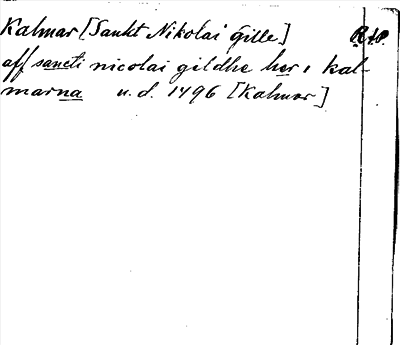 Kalmar [Sankt Nikolai Gille.] RAP.
aff sancti nicolai gildhe her i kal-
marna u. d. 1496 [Kalmar]